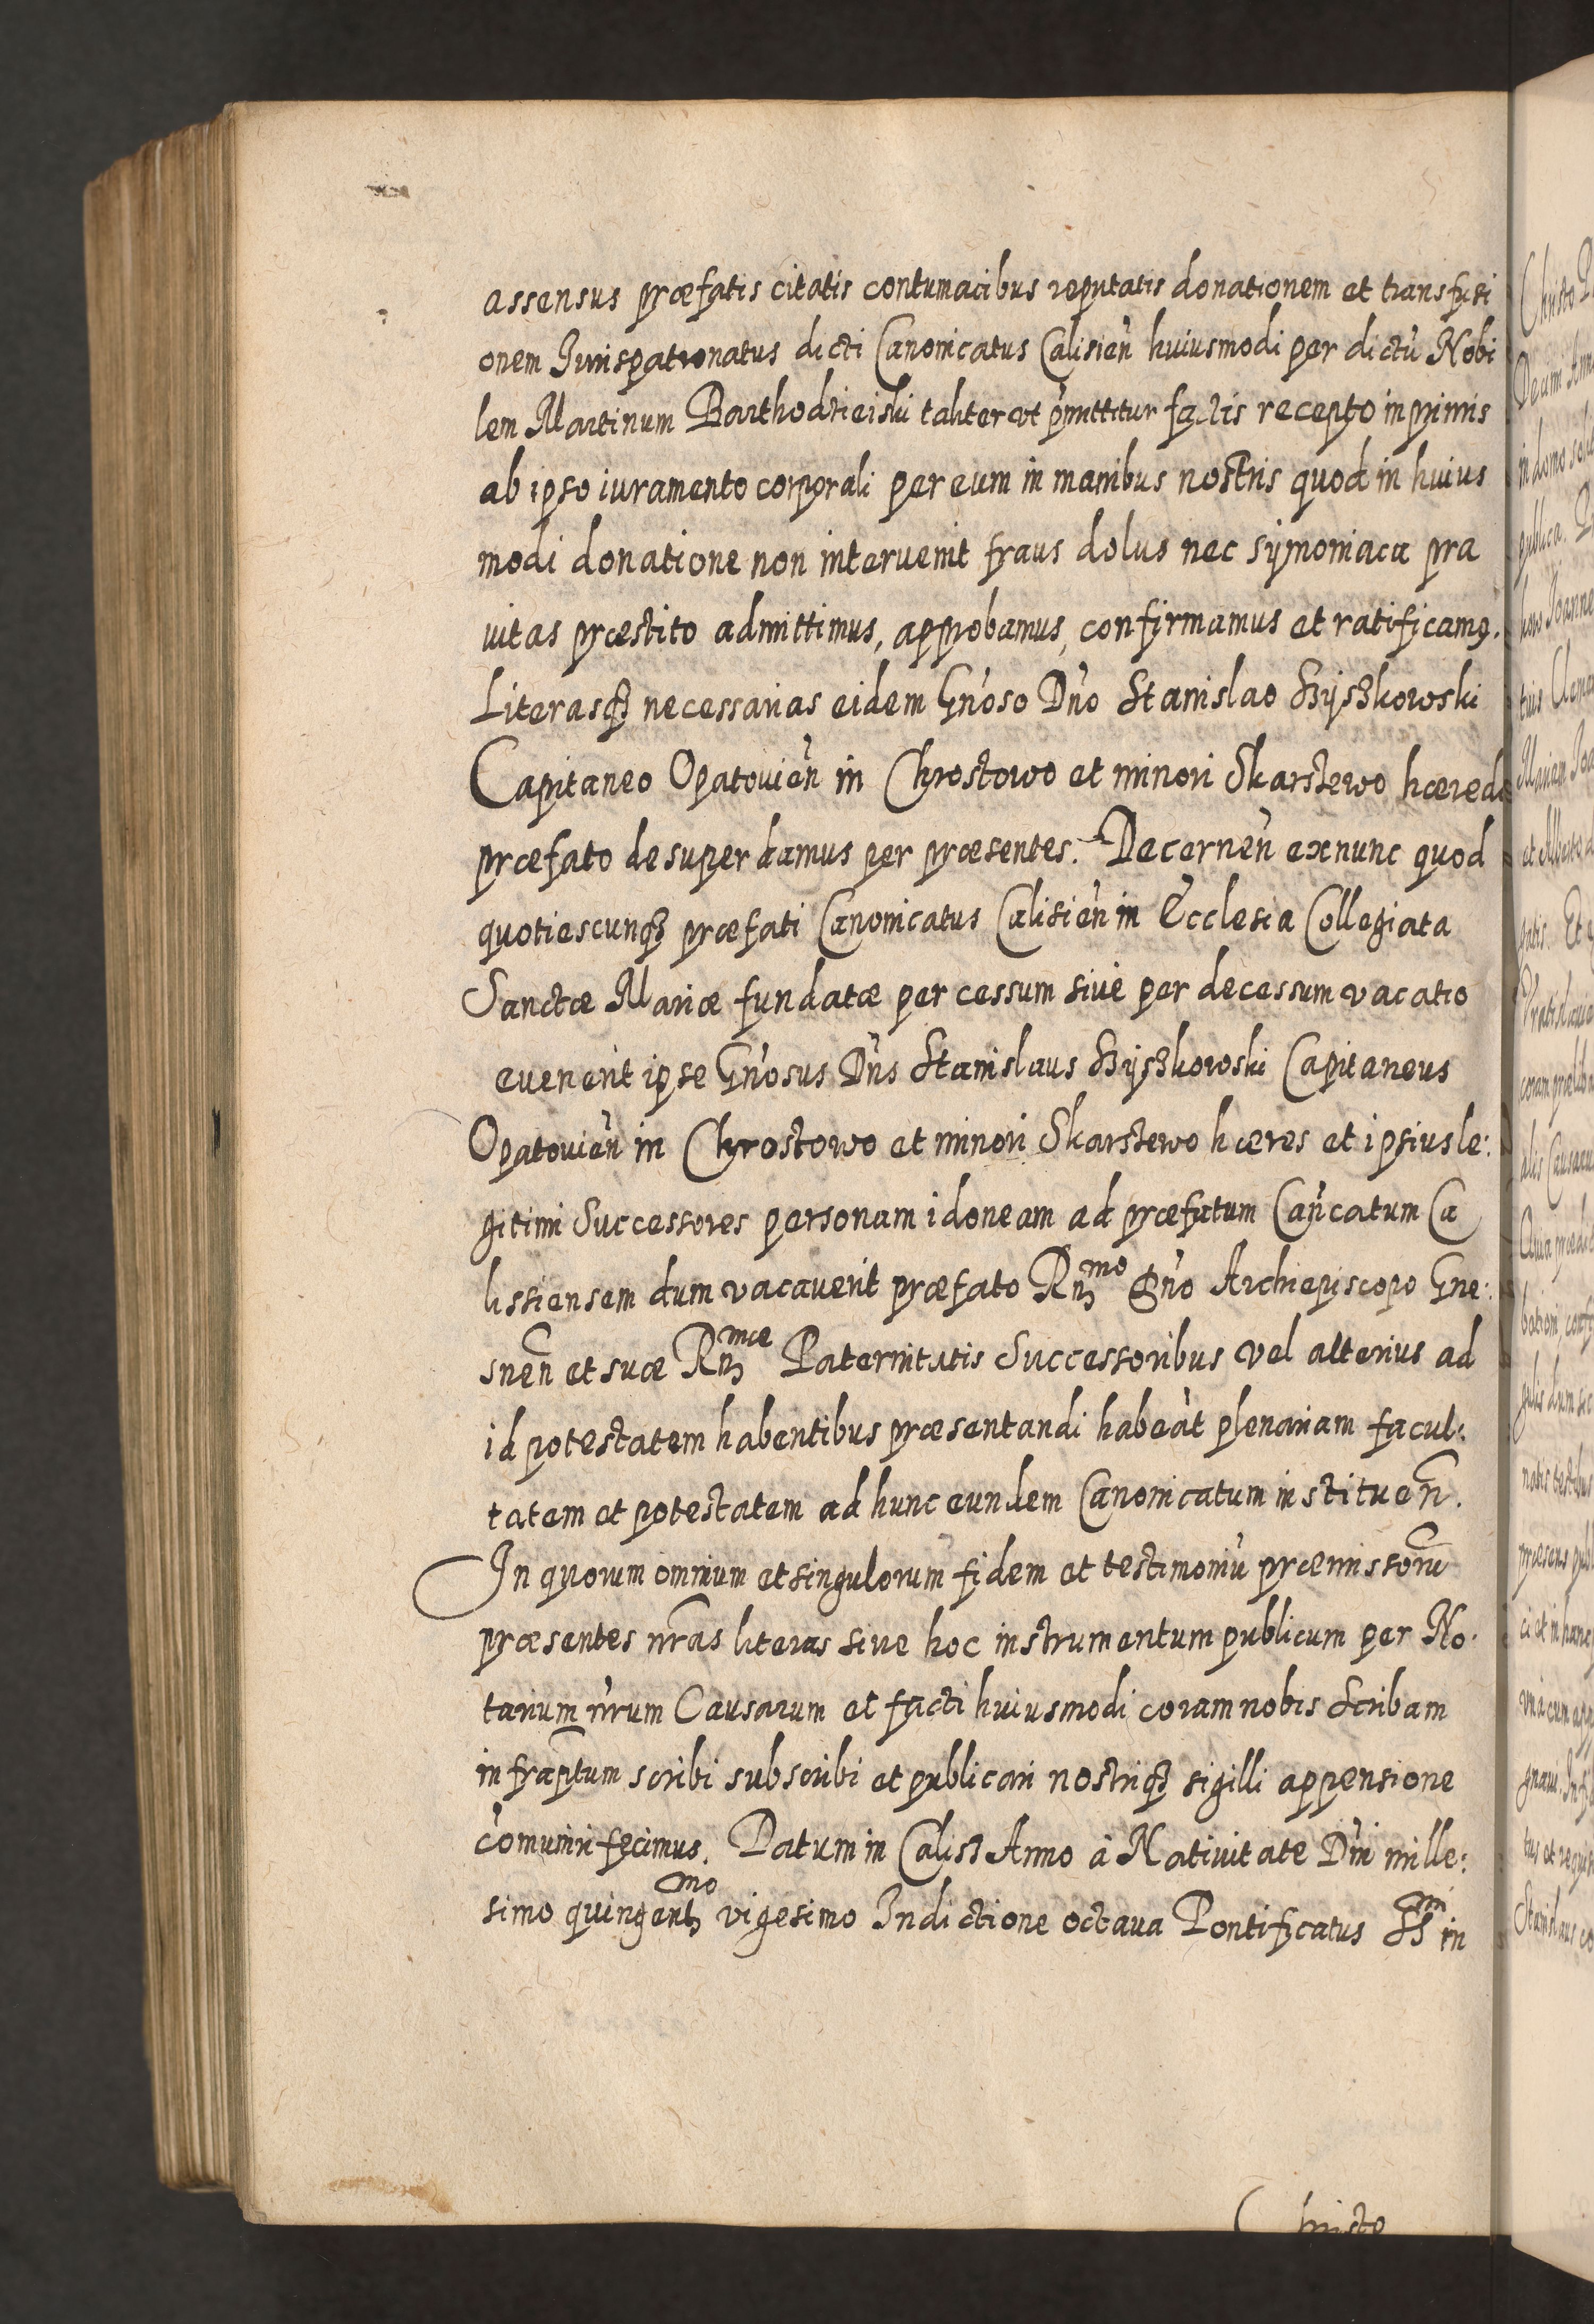 assensus præfatis citatis contumacibus reputatis donationem et transfusi
onem Jurispatronatus dicti Canonicatus Calisien̄ huiusmodi per dictū Nobi
lem Martinum Barthodzieiski taliter vt p̄mittitur factis recepto inprimis
ab ipso iuramento corporali per eum in manibus nostris quod in huius
modi donatione non interuenit fraus dolus nec symoniaca pra
uitas præstito admittimus, approbamus, confirmamus et ratificamꝯ.
Literasqꝫ necessarias eidem Gn̄oso Dn̄o Stanislao Szyszkowski
Capitaneo Opatouien̄ in Chrostowo et minori Skarszewo hærede
præfato desuper damus per præsentes. Decernen̄ ex nunc quod
quotiescunqꝫ præfati Canonicatus Calisien̄ in Ecclesia Collegiata
Sanctæ Mariæ fundatæ per cessum siue per decessum vacatio
euenerit ipse Gn̄osus Dn̄s Stanislaus Szyszkowski Capitaneus
Opatouien̄ in Chrostowo et minori Skarszewo hæres et ipsius le:
gitimi Successores personam idoneam ad præfatum Can̄catum Ca
lissiensem dum vacauerit præfato Rn̄ᵐᵒ Dn̄o Archiepiscopo Gne:
snen̄ et suæ Rn̄ᵐᵃᵉ Paternitatis Successoribus vel alterius ad
id potestatem habentibus præsentandi habeāt plenariam facul:
tatem et potestatem ad hunc eundem Canonicatum instituen̄.
In quorum omnium et singulorum fidem et testimoniū præmissorū
præsentes n̄ras literas siue hoc instrumentum publicum per No:
tarium n̄rum Causarum et facti huiusmodi coram nobis Scribam
infrap̄tum scribi subscribi et publicari nostriqꝫ sigilli appensione
com̄uniri fecimus. Datum in Calisz Anno à Natiuitate Dn̄i mille:
simo quingentᵐᵒ vigesimo Indictione octaua Pontificatus SSᵐⁱ in
Christo